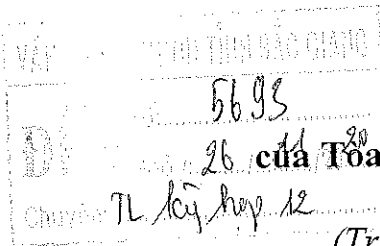 TỈNH BẮC GIANG
5693
ĐẾN
26
của Tòa
Chuyển:
TL kỳ họp 12
(Tr